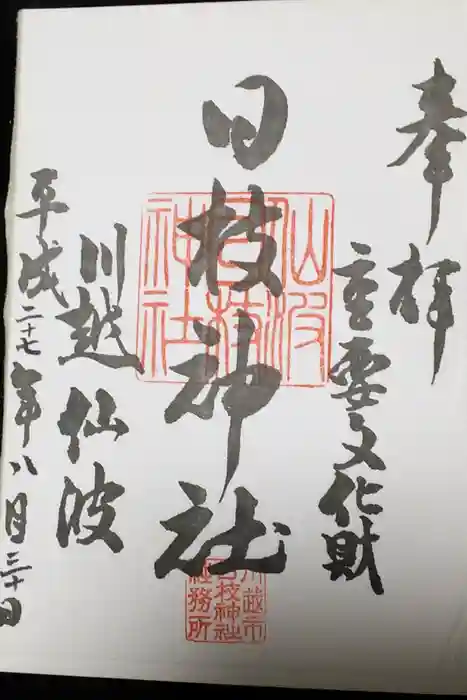 奉拝
重要文化財
日枝神社
川越仙波
平成二十七年八月三十日
仙波
日枝
神社
川越市
日枝神社
社務所